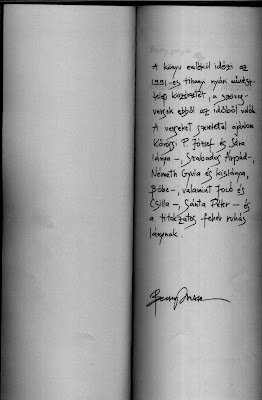 A könyv emlékül idézi az
1991-es tihanyi nyári művész-
telep közösségét, a szöveg-
versek ebből az időből valók.
A verseket szeretettel ajánlom
Kőrössi P. József és Sára
lánya –, Szabados Árpád –,
Németh Gyula és kislánya,
Böbe –, valamint Jocó és
Csilla –, Sánta Péter – és
a titokzatos fehér ruhás
lánynak.